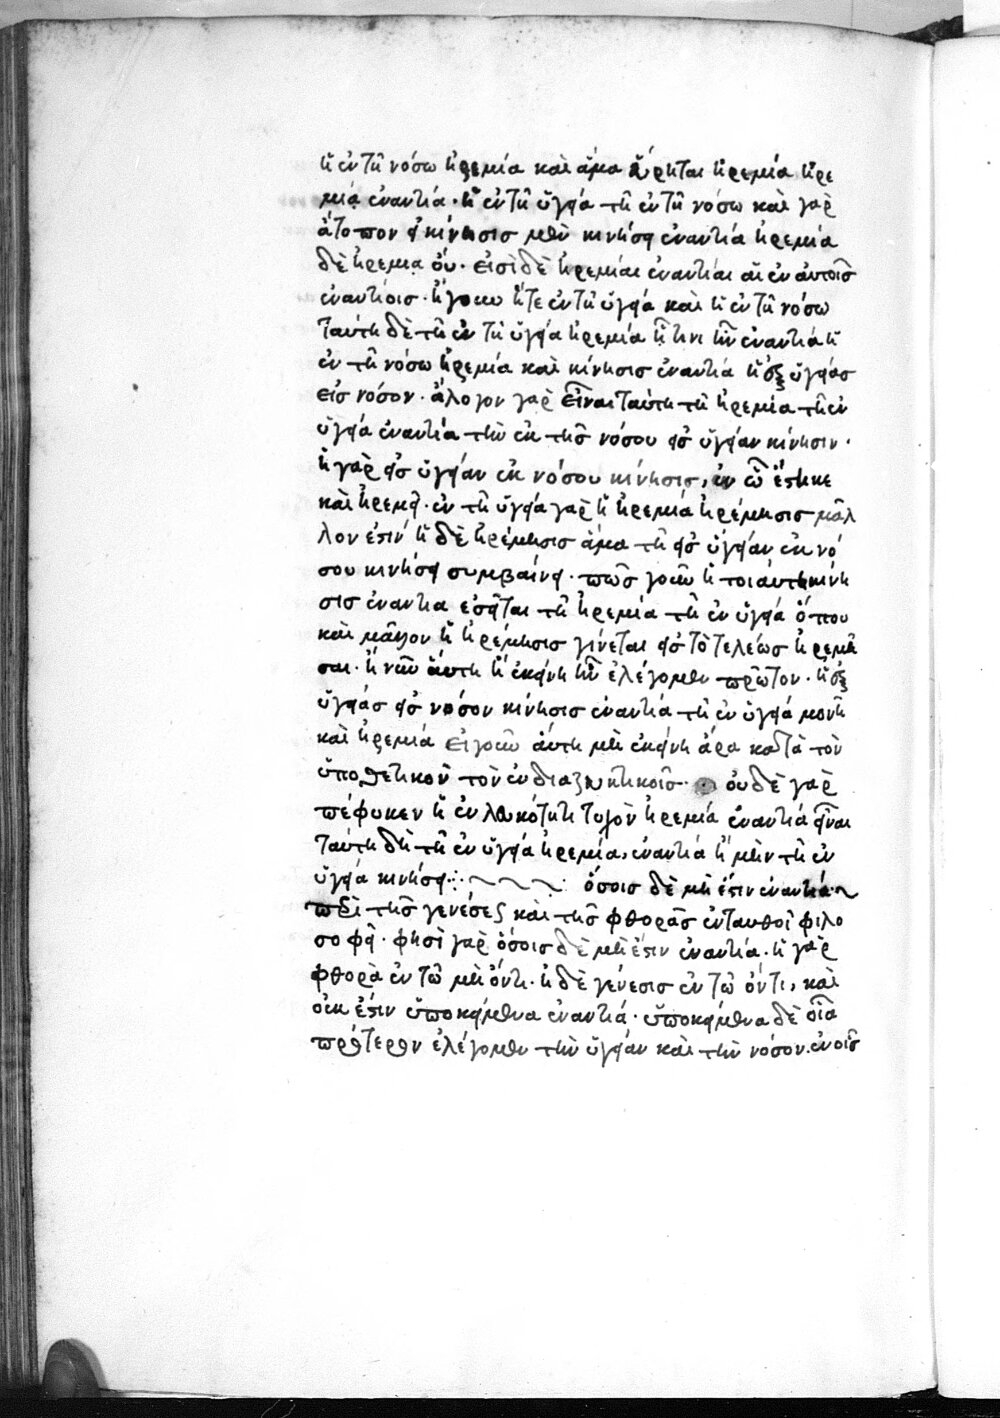 ἡ ἐν τῆ νόσω ἠρεμία καὶ ἅμα εἴρηται ἠρεμία ἠρε
μία ἐναντία· ἡ ἐν τῆ ὑγεία τῆ ἐν τῆ νόσω καὶ γὰρ
ἄτοπον εἰ κίνησις μὲν κινήσει ἐναντία ἠρεμία
δὲ ἠρεμία οὔ· εἰσὶ δὲ ἠρεμίαι ἐναντίαι αἱ ἐν αὐτοῖς
ἐναντίοις· ἤγουν ἥτε ἐν τῆ ὑγεία καὶ ἡ ἐν τῆ νόσω
ταύτη δὲ τῆ ἐν τῆ ὑγεία ἠρεμία ἥτινι ἦν ἐναντία ἡ
ἐν τῆ νόσω ἠρεμία καὶ κίνησις ἐναντία ἡ ἐξ ὑγείας
εἰς νόσον· ἄλογον γὰρ εἶναι ταύτη τῆ ἠρεμία τῆ ἐν
ὑγεία ἐναντία τὴν ἐκ τῆς νόσου εἰς ὑγείαν κίνησιν·
ἡ γὰρ εἰς ὑγείαν ἐκ νόσου κίνησις, ἐν ὧ ἕστηκε
καὶ ἠρεμεῖ· ἐν τῆ ὑγεία γὰρ ἡ ἠρεμία ἠρέμησις μᾶλ
λον ἐστίν ἡ δὲ ἠρέμησις ἅμα τῆ εἰς ὑγείαν ἐκ νό
σου κινήσει συμβαίνει· πῶς γοῦν ἡ τοιαύτη κίνη
σις ἐναντία ἔσεται τῆ ἠρεμία τῆ ἐν ὑγεία ὅπου
καὶ μᾶλλον ἡ ἠρέμησις γίνεται εἰς τὸ τελέως ἠρεμῆ
σαι· ἢ γοῦν αὕτη ἢ ἐκείνη ἣν ἐλέγομεν πρῶτον· ἡ ἐξ
ὑγείας εἰς νόσον κίνησις ἐναντία τῆ ἐν ὑγεία μονῆ
καὶ ἠρεμία εἰ γοῦν αὕτη μὴ ἐκείνη ἄρα κατὰ τὸν
ὑποθετικὸν τὸν ἐν διαζευκτικοῖς· οὐδὲ γὰρ
πέφυκεν ἡ ἐν λευκότητι τυχὸν ἠρεμία ἐναντία εἶναι
ταύτη δὴ τῆ ἐν ὑγεία ἠρεμία, ἐναντία ἢ μὴν τῆ ἐν
ὑγεία κινήσει· ὅσοις δὲ μὴ ἔστιν ἐναντία
περὶ τῆς γενέσεως καὶ τῆς φθορᾶς ἐνταυθοῖ φιλο
σοφεῖ· φησὶ γὰρ ὅσοις δὲ μὴ ἔστιν ἐναντία· ἡ γὰρ
φθορὰ ἐν τῶ μὴ ὄντι· ἡ δὲ γένεσις ἐν τῶ ὄντι, καὶ
οὐκ ἔστιν ὑποκείμενα ἐναντία· ὑποκείμενα δὲ οἷα
πρότερον ἐλέγομεν τὴν ὑγείαν καὶ τὴν νόσον. ἐν οἷς